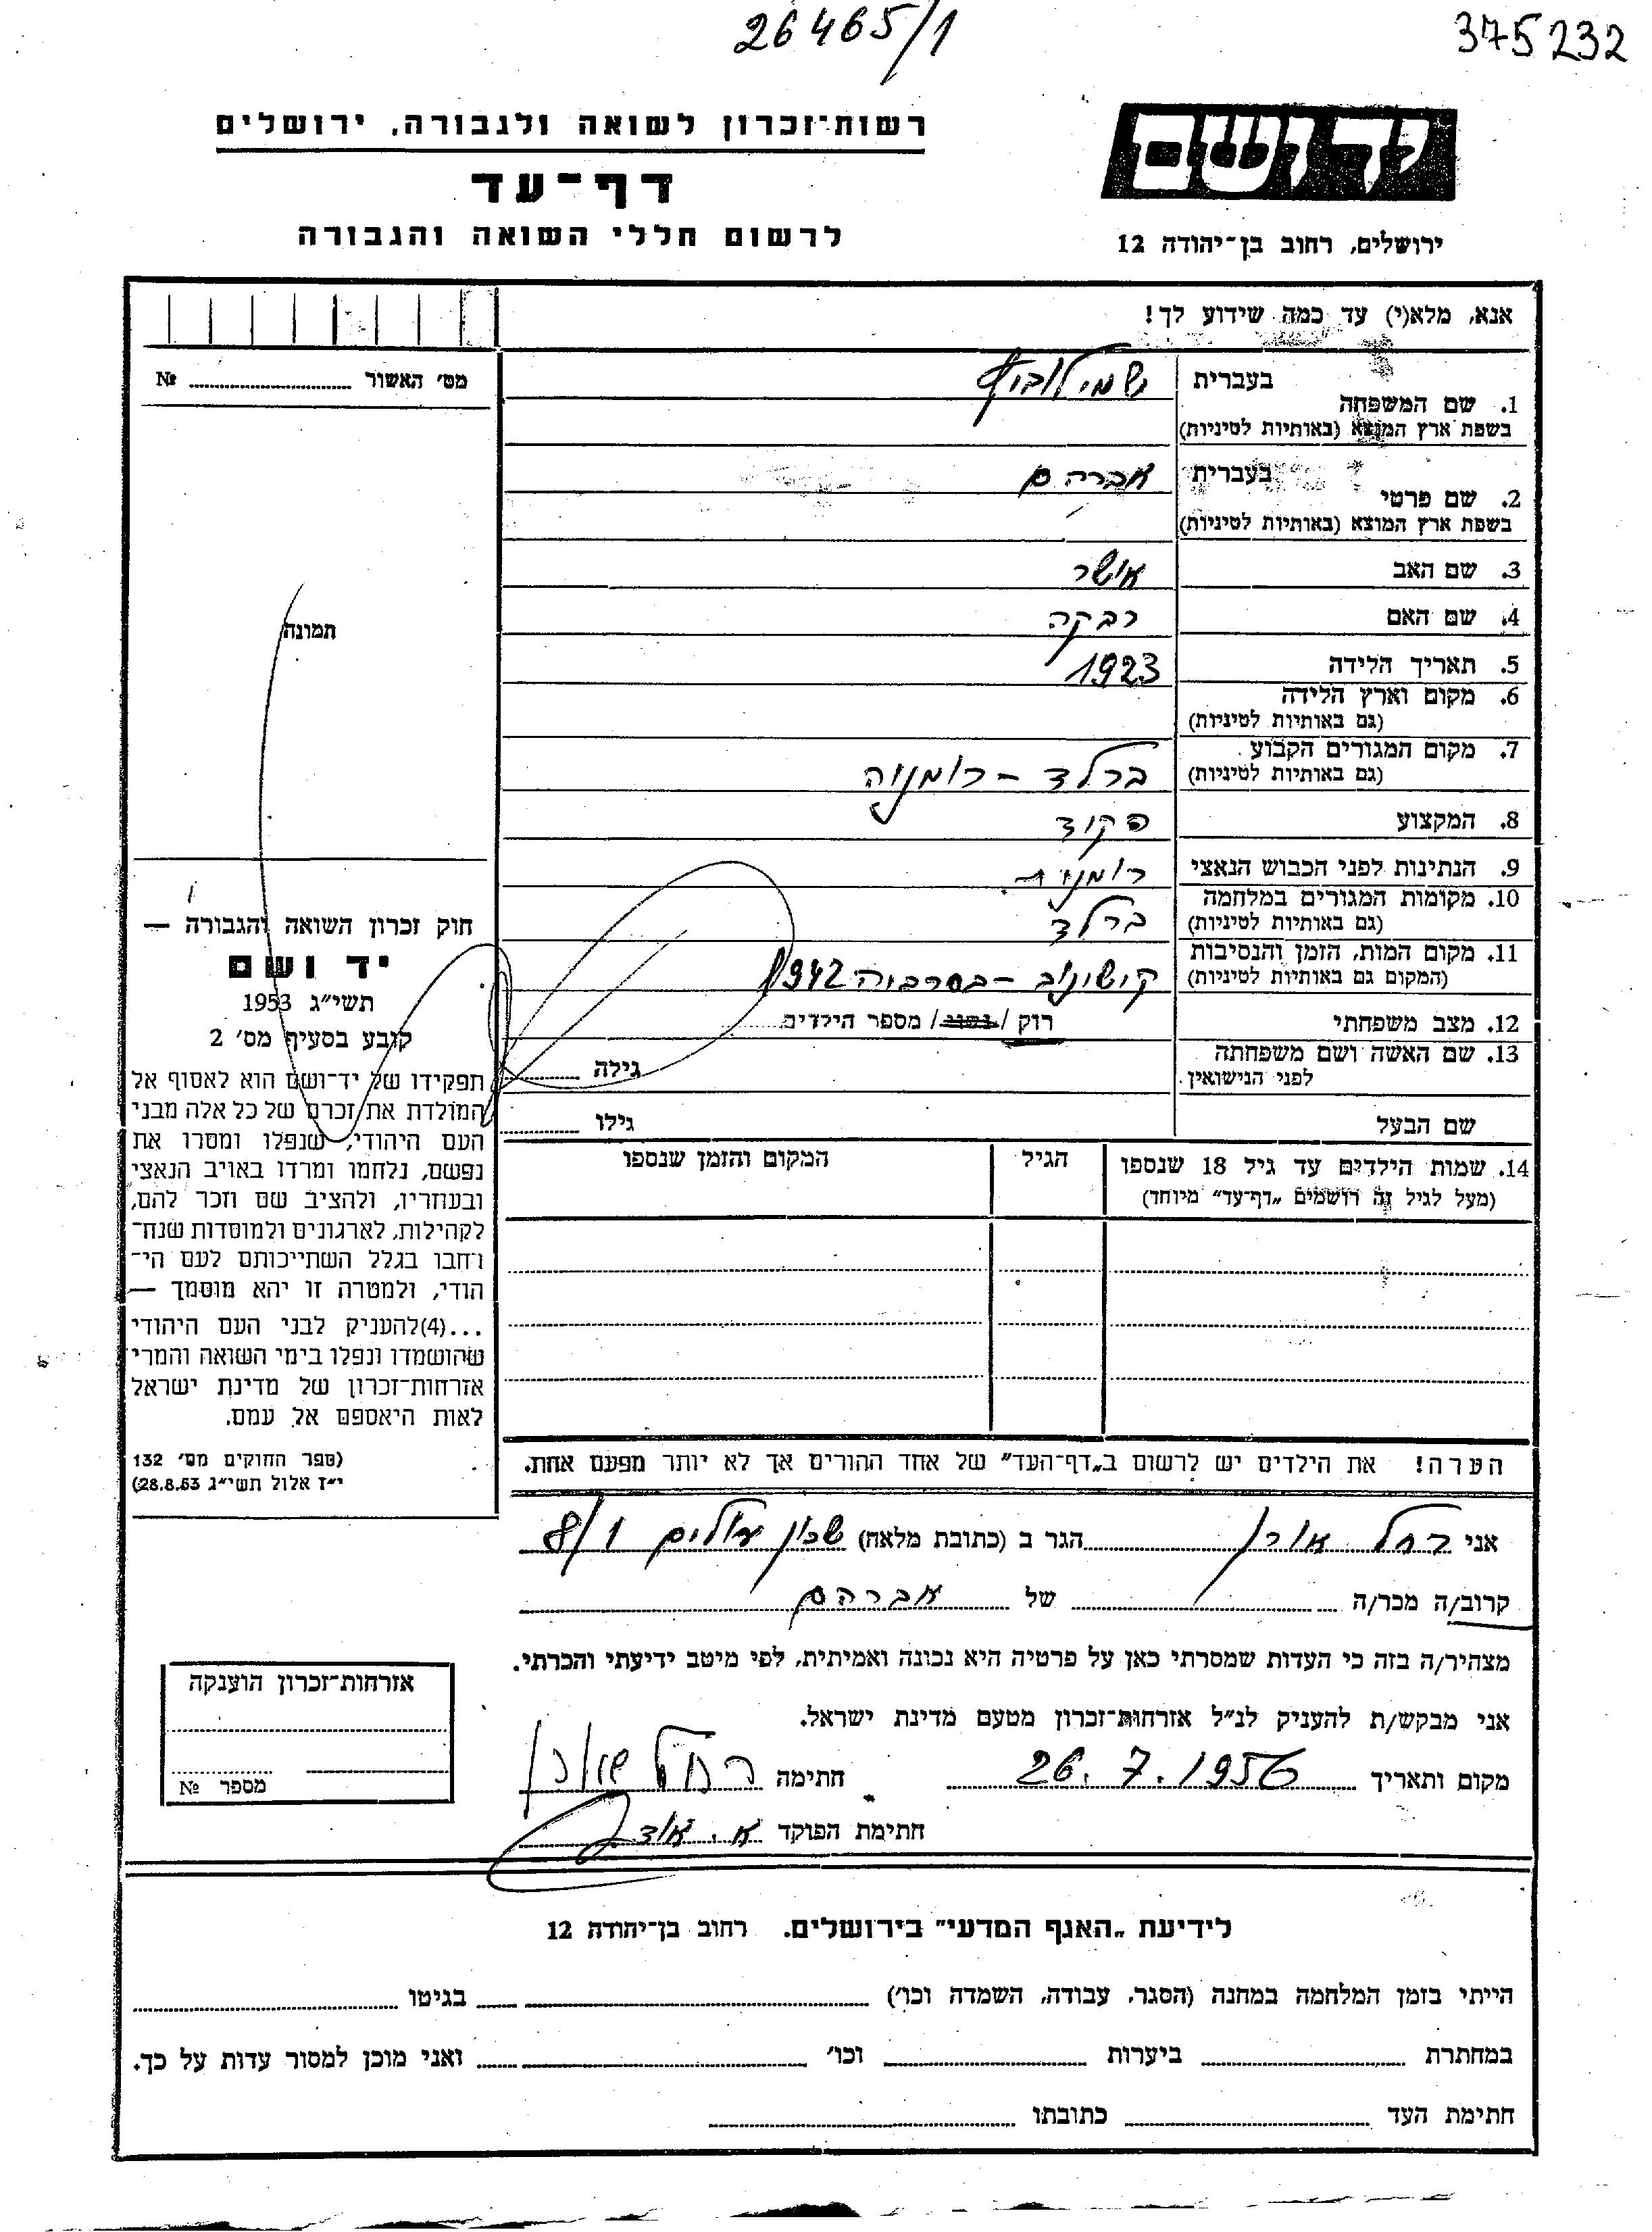 26465/1
375232
יד ושם
ירושלים, רחוב בן־יהודה 12
רשות־זכרון לשואה ולגבורה, ירושלים
דף־עד
לרשום חללי השואה והגבורה
אנא, מלא(י) עד כמה שידוע לך!
מס׳ האשור № ............
1. שם המשפחה
בעברית שמילוביץ
בשפת ארץ המוצא (באותיות לטיניות)
2. שם פרטי
בעברית אברהם
בשפת ארץ המוצא (באותיות לטיניות)
3. שם האב אושר
4. שם האם רבקה
5. תאריך הלידה 1923
6. מקום וארץ הלידה
(גם באותיות לטיניות)
7. מקום המגורים הקבוע
(גם באותיות לטיניות) ברלד – רומניה
8. המקצוע פקיד
9. הנתינות לפני הכבוש הנאצי רומנית
10. מקומות המגורים במלחמה
(גם באותיות לטיניות) ברלד
11. מקום המות, הזמן והנסיבות
(המקום גם באותיות לטיניות) קישינוב – בסרביה 1942
12. מצב משפחתי רוק / נשוי / מספר הילדים
13. שם האשה ושם משפחתה
לפני הנישואין גילה
שם הבעל גילו
14. שמות הילדים עד גיל 18 שנספו
(מעל לגיל זה רושמים „דף־עד״ מיוחד)
הגיל
המקום והזמן שנספו
הערה! את הילדים יש לרשום ב„דף־העד״ של אחד ההורים אך לא יותר מפעם אחת.
תמונה
חוק זכרון השואה והגבורה —
יד ושם
תשי״ג 1953
קובע בסעיף מס׳ 2
תפקידו של יד־ושם הוא לאסוף אל
המולדת את זכרם של כל אלה מבני
העם היהודי, שנפלו ומסרו את
נפשם, נלחמו ומרדו באויב הנאצי
ובעוזריו, ולהציב שם וזכר להם,
לקהילות, לארגונים ולמוסדות שנח־
רבו בגלל השתייכותם לעם הי־
הודי, ולמטרה זו יהא מוסמך —
...(4)להעניק לבני העם היהודי
שהושמדו ונפלו בימי השואה והמרי
אזרחות־זכרון של מדינת ישראל
לאות היאספם אל עמם.
(ספר החוקים מס׳ 132
י״ז אלול תשי״ג 28.8.53)
אני רחל אורן הגר ב (כתובת מלאה) שכון עולים 8/1
קרוב/ה מכר/ה של אברהם
מצהיר/ה בזה כי העדות שמסרתי כאן על פרטיה היא נכונה ואמיתית, לפי מיטב ידיעתי והכרתי.
אני מבקש/ת להעניק לנ״ל אזרחות־זכרון מטעם מדינת ישראל.
מקום ותאריך 26.7.1956 חתימה רחל אורן
חתימת הפוקד
אזרחות־זכרון הוענקה
מספר №
לידיעת „האגף המדעי״ בירושלים. רחוב בן־יהודה 12
הייתי בזמן המלחמה במחנה (הסגר, עבודה, השמדה וכו׳) בגיטו
במחתרת ביערות וכו׳ ואני מוכן למסור עדות על כך.
חתימת העד כתובתו